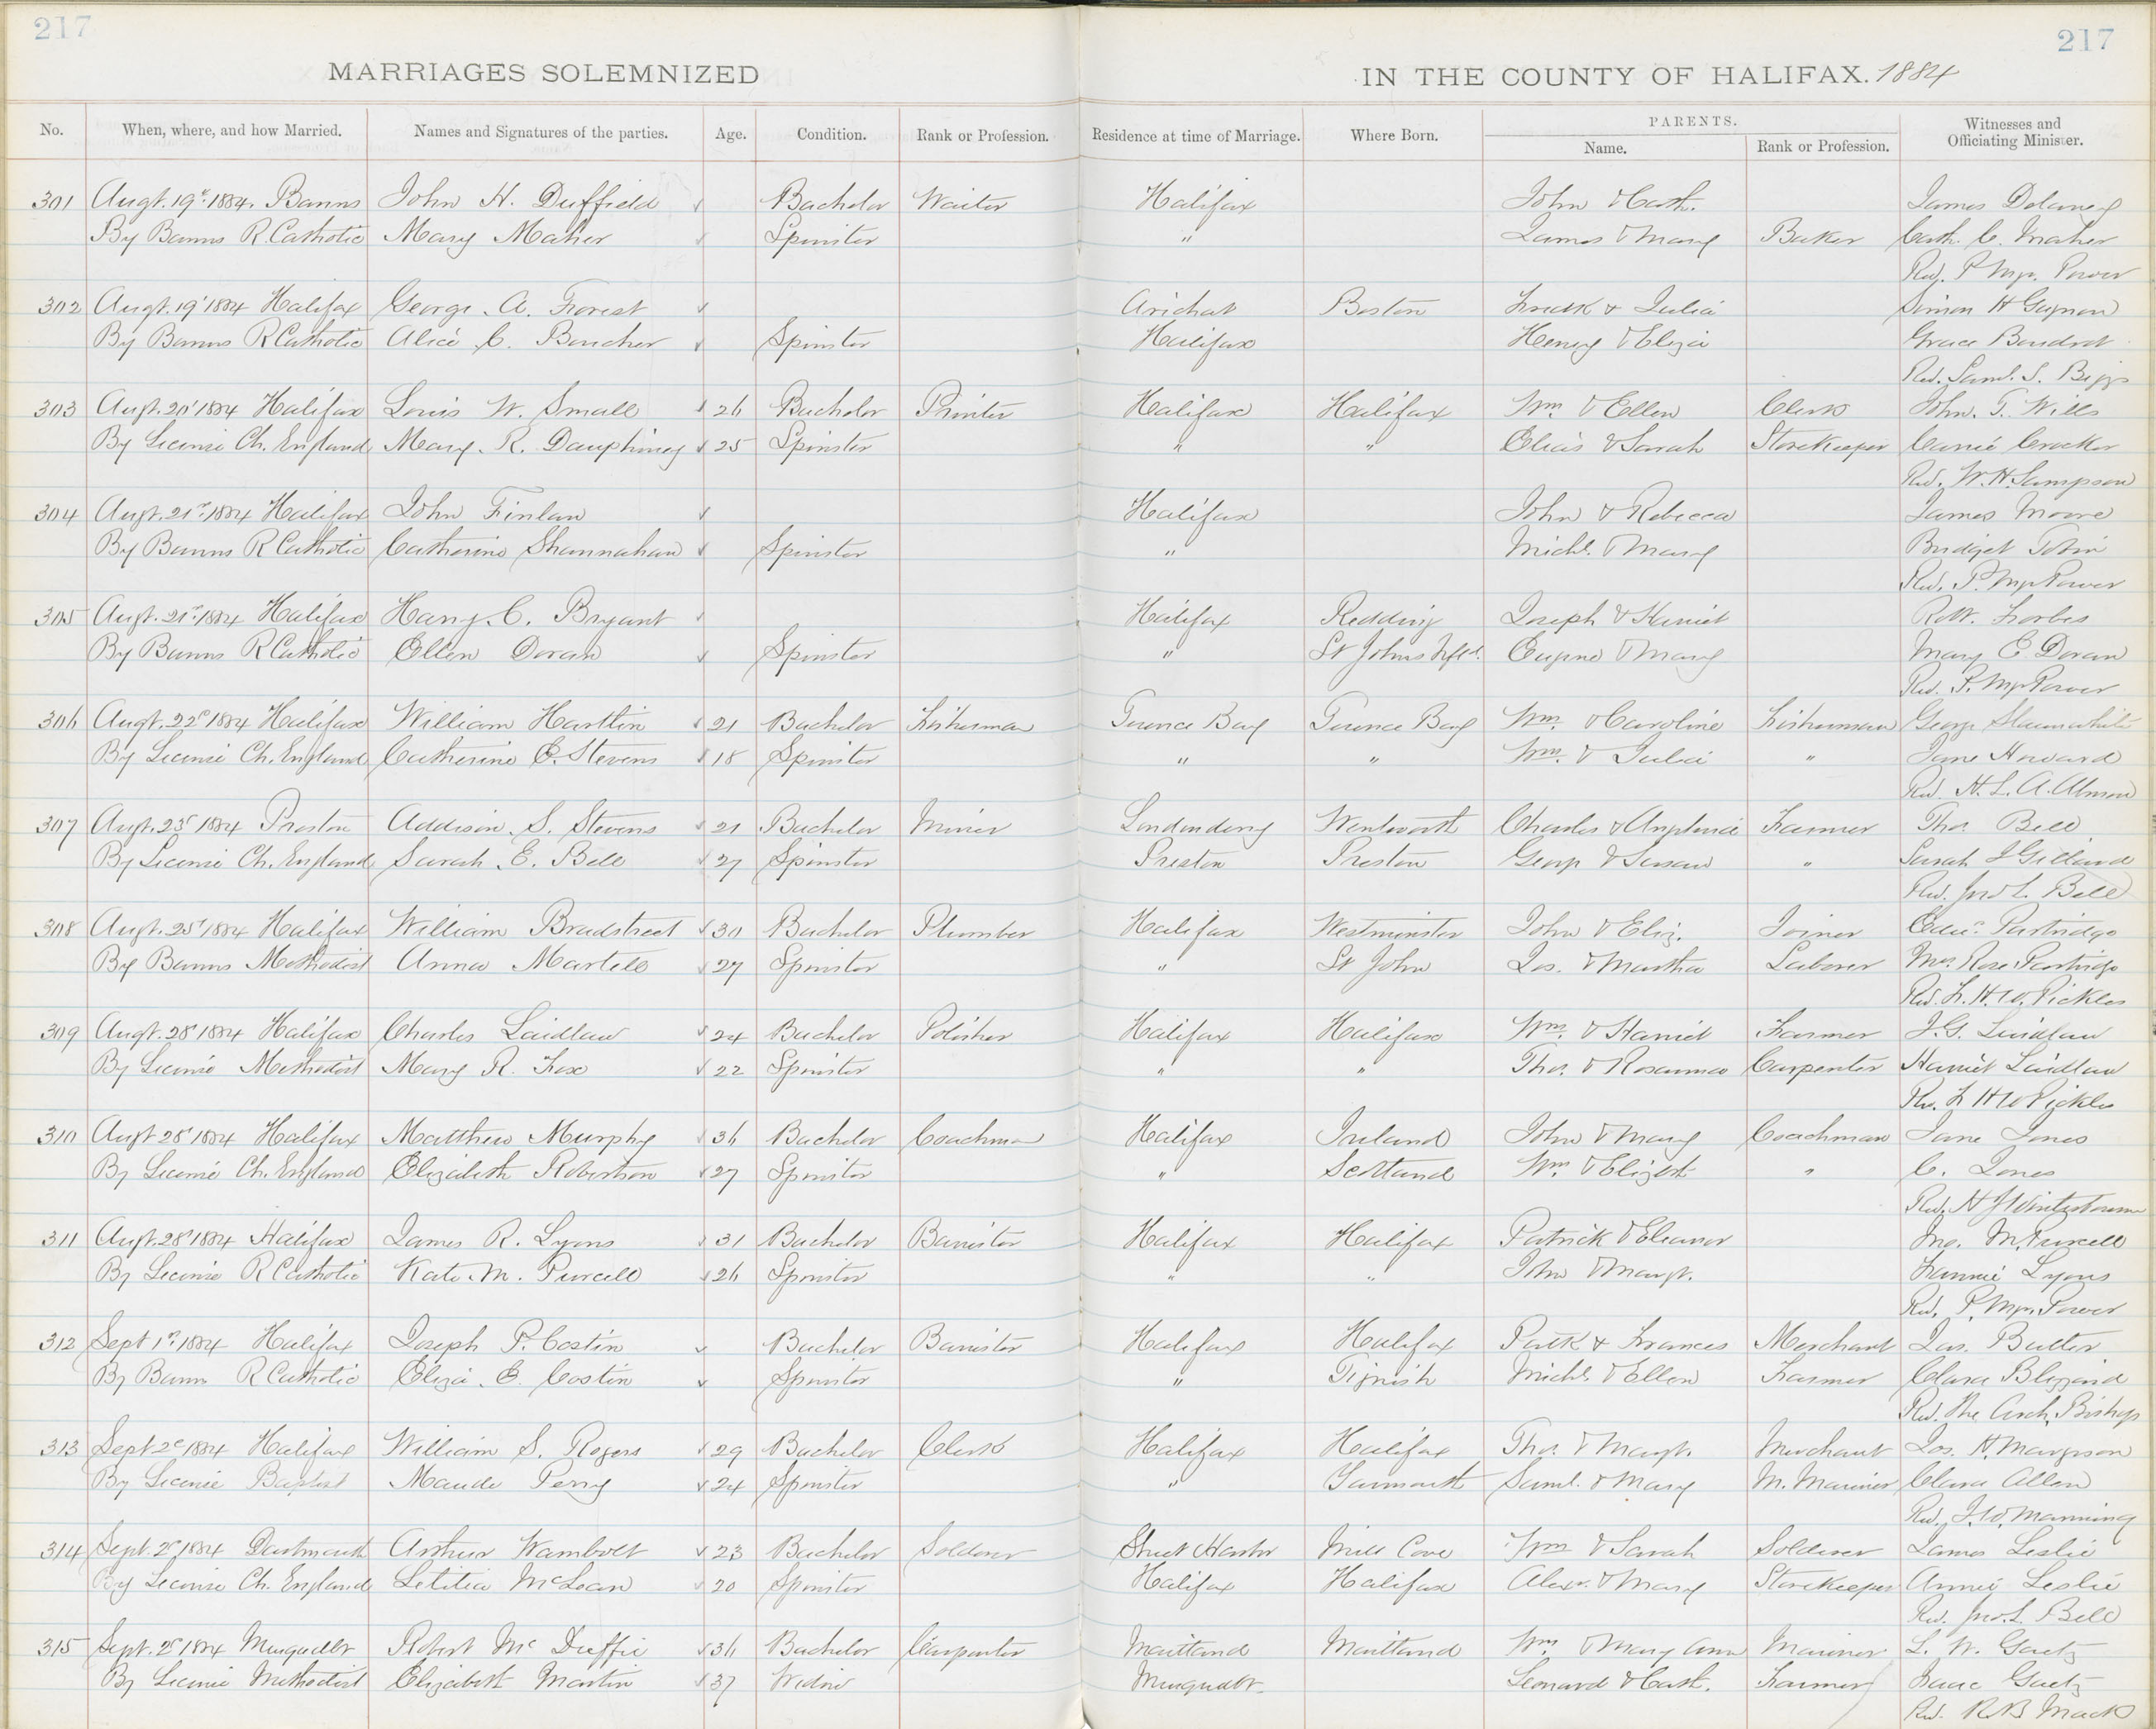 217 217
MARRIAGES SOLEMNIZED IN THE COUNTY OF HALIFAX. 1884
No. When, where, and how Married. Names and Signatures of the parties. Age. Condition. Rank or Profession. Residence at time of Marriage. Where Born. PARENTS. Name. Rank or Profession. Witnesses and Officiating Minister.
301 Augt. 19th 1884. Banns John H. Duffield Bachelor Waiter Halifax John & Cath. James Delaney
By Banns R. Catholic Mary Maher Spinster " James & Mary Baker Cath. C. Maher
Rev. P. Power
302 Augt. 19' 1884 Halifax George A. Forest Arichat Boston Fredk & Julia Simon H
By Banns R Catholic Alice C. Boucher Spinster Halifax Henry & Eliza Grace Boudrot
Rev. Saml. S. Biggs
303 Augt. 20' 1884 Halifax Louis W. Small 26 Bachelor Printer Halifax Halifax Wm. & Ellen Clerk John. T. Wills
By License Ch. England Mary. R. Dauphiney 25 Spinster " " Elias & Sarah Storekeeper Carrie Crocker
Rev. W. H. Sampson
304 Augt. 21st 1884 Halifax John Finlan Halifax John & Rebecca James Moore
By Banns R Catholic Catherine Shannahan Spinster " Michl. & Mary Bridget Tobin
Rev. P. Power
305 Augt. 21st 1884 Halifax Harry. C. Bryant Halifax Redding Joseph & Harriet Robt. Forbes
By Banns R Catholic Ellen Doran Spinster " St Johns Nfld. Eugene & Mary Mary E Doran
Rev. P. Power
306 Augt. 22d 1884 Halifax William Hartlin 21 Bachelor Fisherman Terence Bay Terence Bay Wm. & Caroline Fisherman George Slaunwhite
By License Ch. England Catherine E. Stevens 18 Spinster " " Wm. & Julia " Jane Howard
Rev. H. L. A. Almon
307 Augt. 23d 1884 Preston Addison. S. Stevens 21 Bachelor Miner Londonderry Wentworth Charles & Farmer Thos. Bell
By License Ch. England Sarah. E. Bell 27 Spinster Preston Preston George & Susan " Sarah J Gilland
Rev. Jno L. Bell
308 Augt. 25' 1884 Halifax William Bradstreet 30 Bachelor Plumber Halifax Westminster John & Eliz. Joiner Edwd. Partridge
By Banns Methodist Anna Martell 27 Spinster " St John Jas. & Martha Laborer Mrs. Rose Partridge
Rev. F. H. W. Pickles
309 Augt. 28' 1884 Halifax Charles Laidlaw 24 Bachelor Polisher Halifax Halifax Wm. & Harriet Farmer J. G. Laidlaw
By License Methodist Mary R. Fox 22 Spinster " " Thos. & Rosanna Carpenter Harriet Laidlaw
Rev. F H W Pickles
310 Augt 28' 1884 Halifax Matthew Murphy 36 Bachelor Coachman Halifax Ireland John & Mary Coachman Jane Jones
By License Ch. England Elizabeth Robertson 27 Spinster " Scotland Wm & Elizbth " C. Jones
Rev. H J Winterbourne
311 Augt. 28' 1884 Halifax James R. Lyons 31 Bachelor Barrister Halifax Halifax Patrick & Eleanor Jno. M. Purcell
By License R Catholic Kate. M. Purcell 26 Spinster " " John & Margt. Fannie Lyons
Rev. P. Power
312 Sept 1st 1884 Halifax Joseph P. Costin Bachelor Barrister Halifax Halifax Patk & Frances Merchant Jas. Butler
By Banns R Catholic Eliza. E. Costin Spinster " Tignish Michl. & Ellen Farmer Clara Blizzard
Rev. The Arch. Bishop
313 Sept 2d 1884 Halifax William S. Rogers 29 Bachelor Clerk Halifax Halifax Thos. & Margt. Merchant Jos. H. Margeson
By License Baptist Maude Perry 24 Spinster " Yarmouth Saml. & Mary M. Mariner Clara Allen
Rev. J. W. Manning
314 Sept. 2d 1884 Dartmouth Arthur Wambolt 23 Bachelor Solderer Sheet Harbr Mill Cove Wm & Sarah Solderer James Leslie
By License Ch. England Letitia McLean 20 Spinster Halifax Halifax Alexr. & Mary Storekeeper Annie Leslie
Rev. Jno. L. Bell
315 Sept. 2d 1884 Musquodbt Robert Mc Duffie 36 Bachelor Carpenter Maitland Maitland Wm & Mary Ann Mariner L. W. Gaetz
By License Methodist Elizabeth Martin 37 Widow Musquodbt. Leonard & Cath. Farmer Isaac Gaetz
Rev. R B Mack